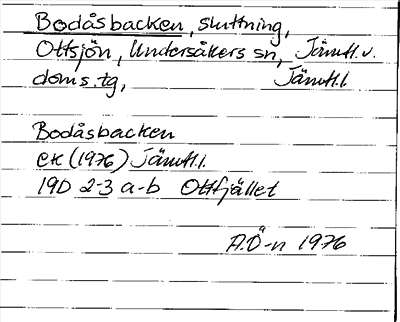 Bodåsbacken, sluttning,
Ottsjön, Undersåkers sn, Jämtl. v.
doms.tg, Jämtl. l
Bodåsbacken
ek (1976) Jämtl. l.
19D 2-3 a-b Ottfjället
A.Ö-n 1976